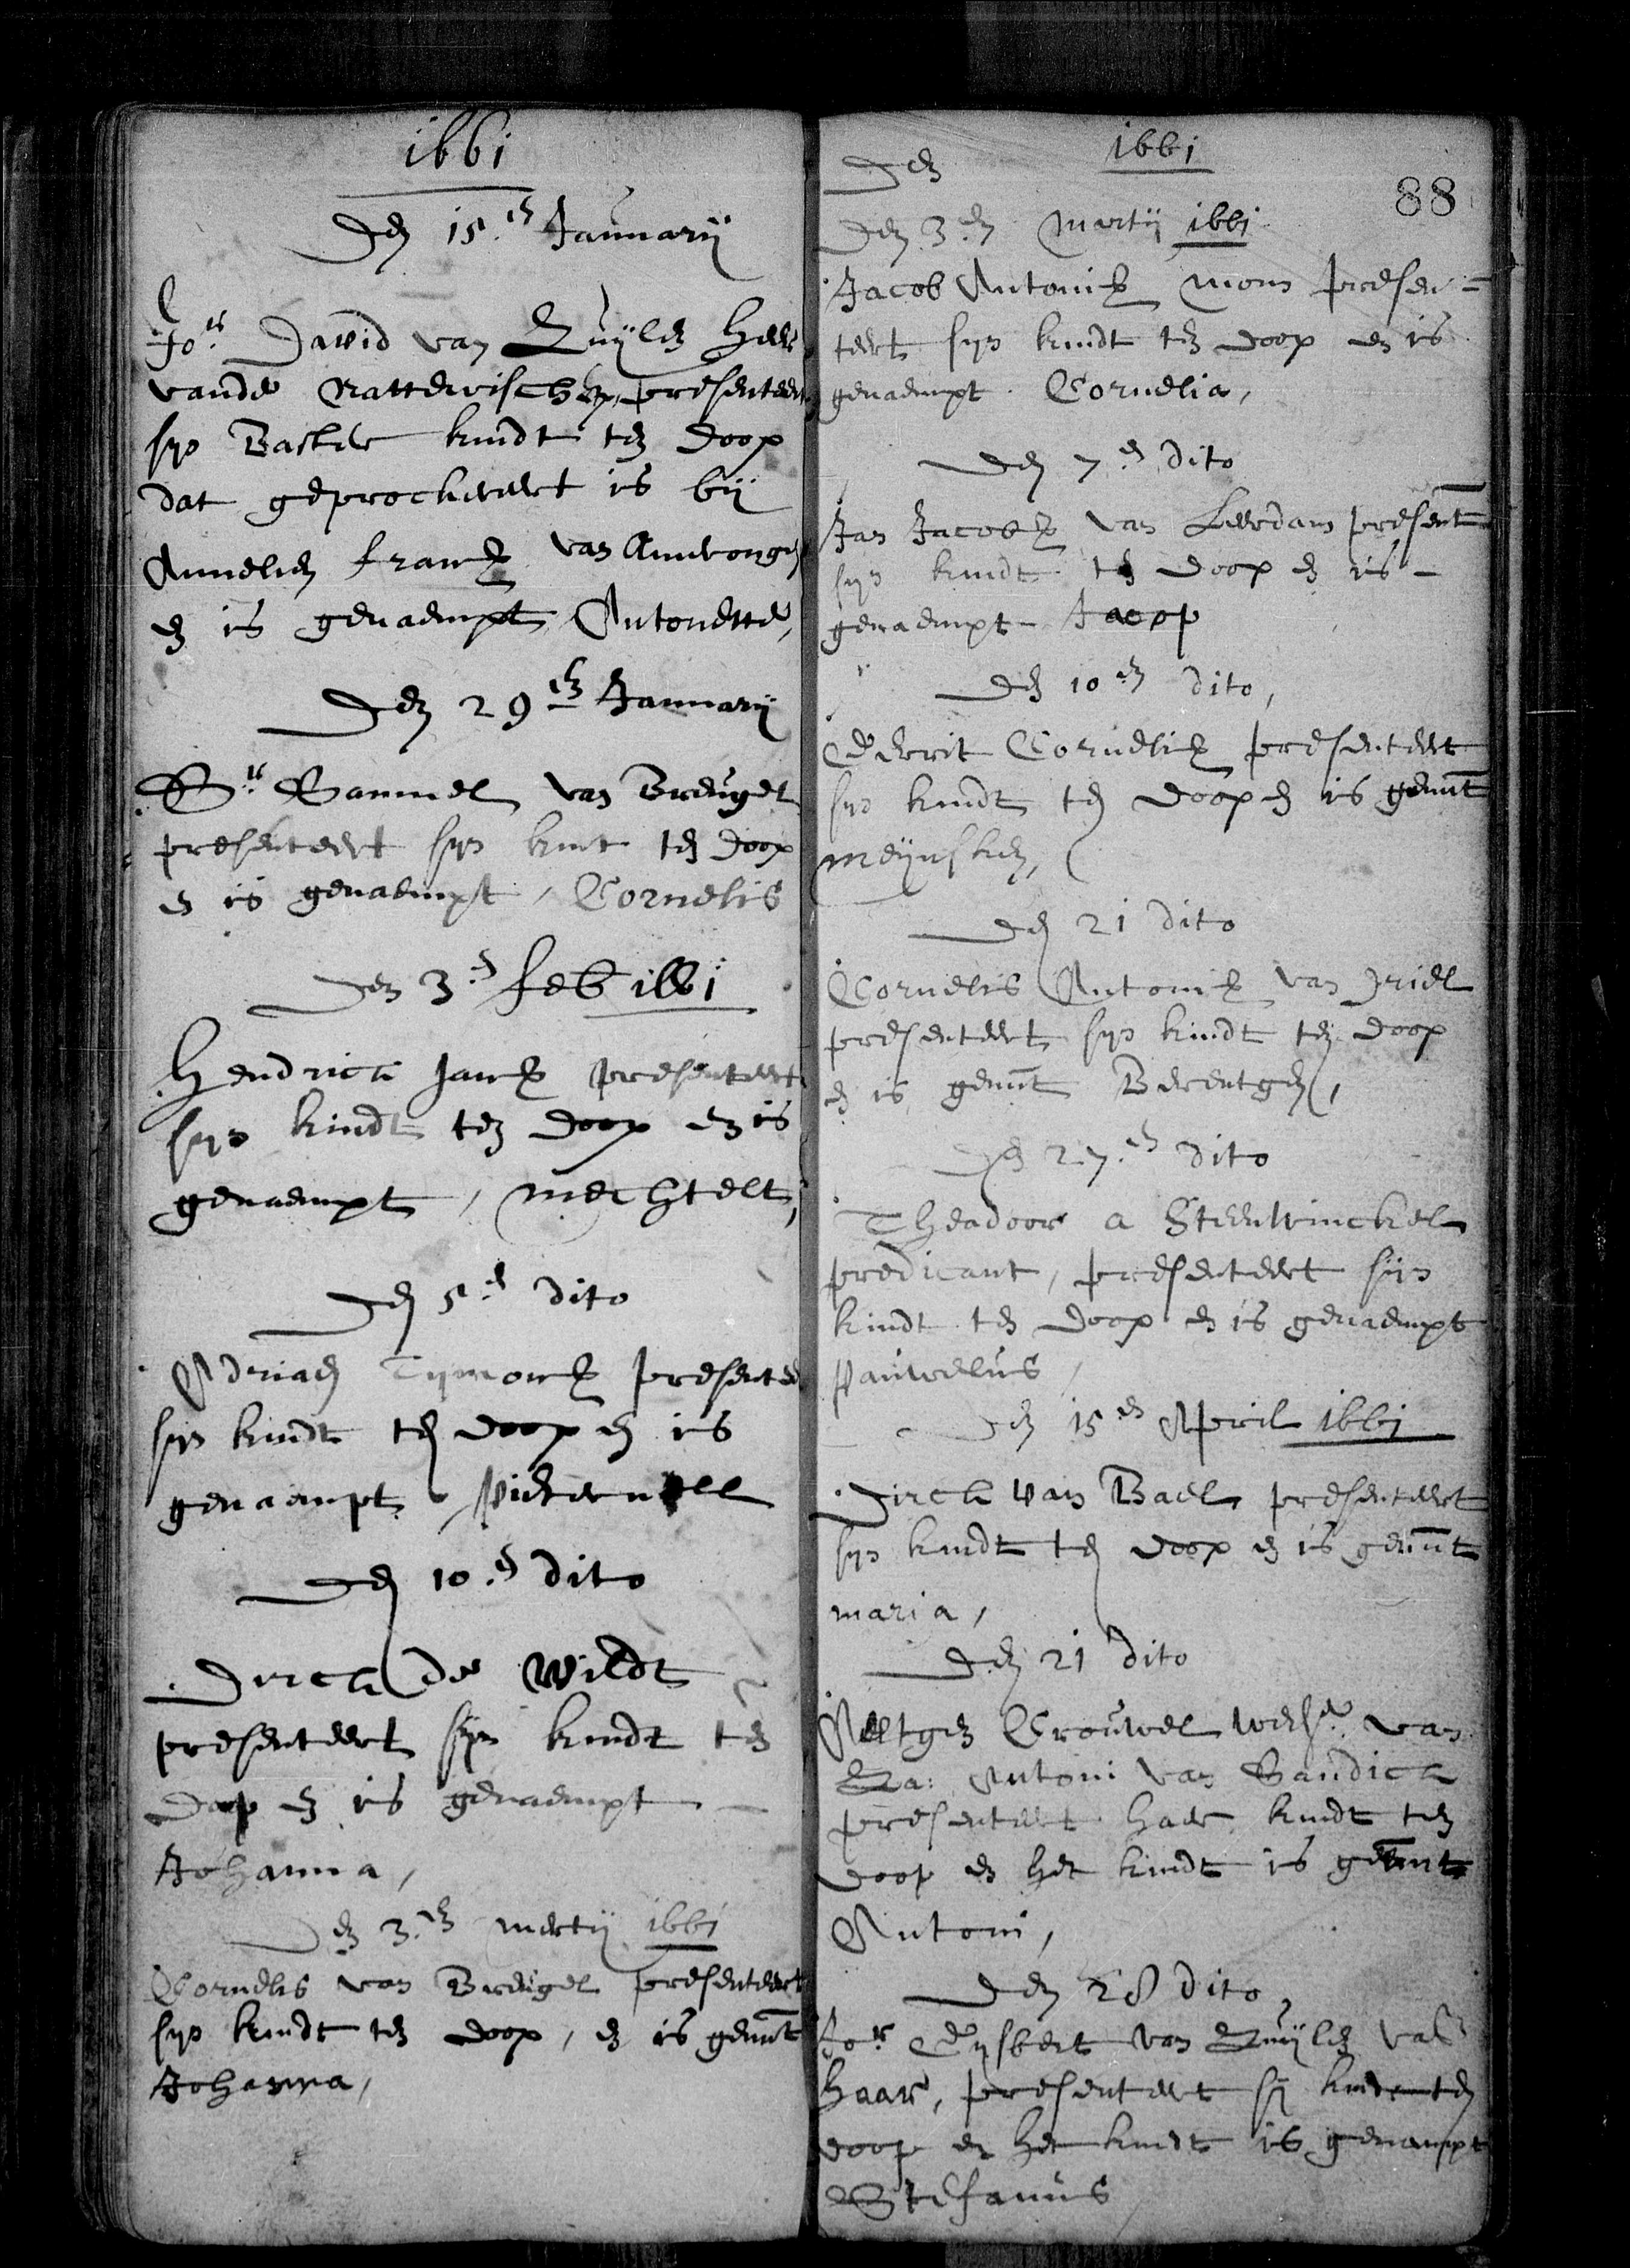 1661
Den 15.en Januarij
Jor. David van Zuijlen heer
vande Natterwisch, presenteert
syn Baster kindt ten doop
dat geprockureert is bij
Annelien Fransz van Amerongen
en is genaempt Antonette,
Den 29en Januarij
Sr. Sammel van Breugel
presenteert syn kint ten doop
en is genaempt, Cornelis
Den 3.en feb 1661
Hendrick Jansz presenteert
syn kindt ten doop en is
genaempt, Mechtelt,
Den 5.en dito
Adriaen Tymonsz presentee
syn kindt ten doop en is
genaempt Pieternell
Den 10.en dito
Dirck de Wildt
presenteert syn kindt ten
doop en is genaempt
Johanna,
Den 3.en Mertij 1661
Cornelis van Breugel presenteert
syn kindt ten doop, en is genmt
Johanna,
1661
Den
88
Den 3.en Martij 1661
Jacob Antonisz Mom presen-
teert syn kindt ten doop en is
genaempt Cornelia,
Den 7en dito
Jan Jacobsz van Leerdam present
syn kindt ten doop en is -
genaempt Jacop
Den 10.en dito,
Gerrit Cornelisz presenteert
syn kindt ten doop en is genmt
Meijnsken,
Den 21 dito
Cornelis Antonisz van Driel
presenteert syn kindt ten doop
en is genmt Berentgen,
Den 27.en dito
Theadoor a Steenwinckel
predicant, presenteert sijn
kindt ten doop en is genaempt
Pauwelus,
Den 15en April 1661
Dirck van Bael presenteert
syn kindt ten doop en is genmt
maria,
Den 21 dito
Neltgen Crouwel wedse. van
Za: Antoni van Sandick
presenteert haer kindt ten
doop en het kindt is genmt
Antoni,
Den 28 dito
Jor Gysbert van Zuijlen van
Haar, presenteert sy kindt ten
doop en het kindt is genaempt
Stefanus